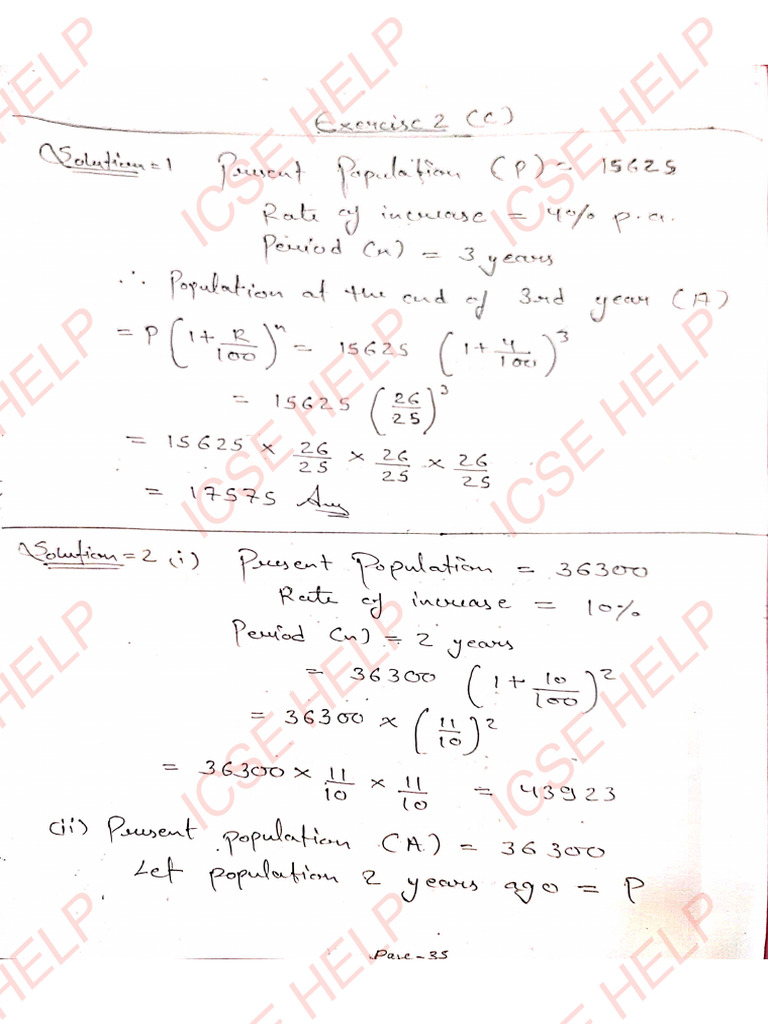 Exercise 2 (C)
Solution = 1 Present Population (P) = 15625
Rate of increase = 4% p.a.
Period (n) = 3 years
∴ Population at the end of 3rd year (A)
= P (1 + R/100)^n = 15625 (1 + 4/100)^3
= 15625 (26/25)^3
= 15625 × 26/25 × 26/25 × 26/25
= 17575 Ans
Solution = 2 (i) Present Population = 36300
Rate of increase = 10%
Period (n) = 2 years
= 36300 (1 + 10/100)^2
= 36300 × (11/10)^2
= 36300 × 11/10 × 11/10 = 43923
(ii) Present population (A) = 36300
Let population 2 years ago = P
Page - 35
ICSE HELP
ICSE HELP
ICSE HELP
ICSE HELP
ICSE HELP
ICSE HELP
ICSE HELP
ICSE HELP
ICSE HELP
ICSE HELP
ICSE HELP
ICSE HELP